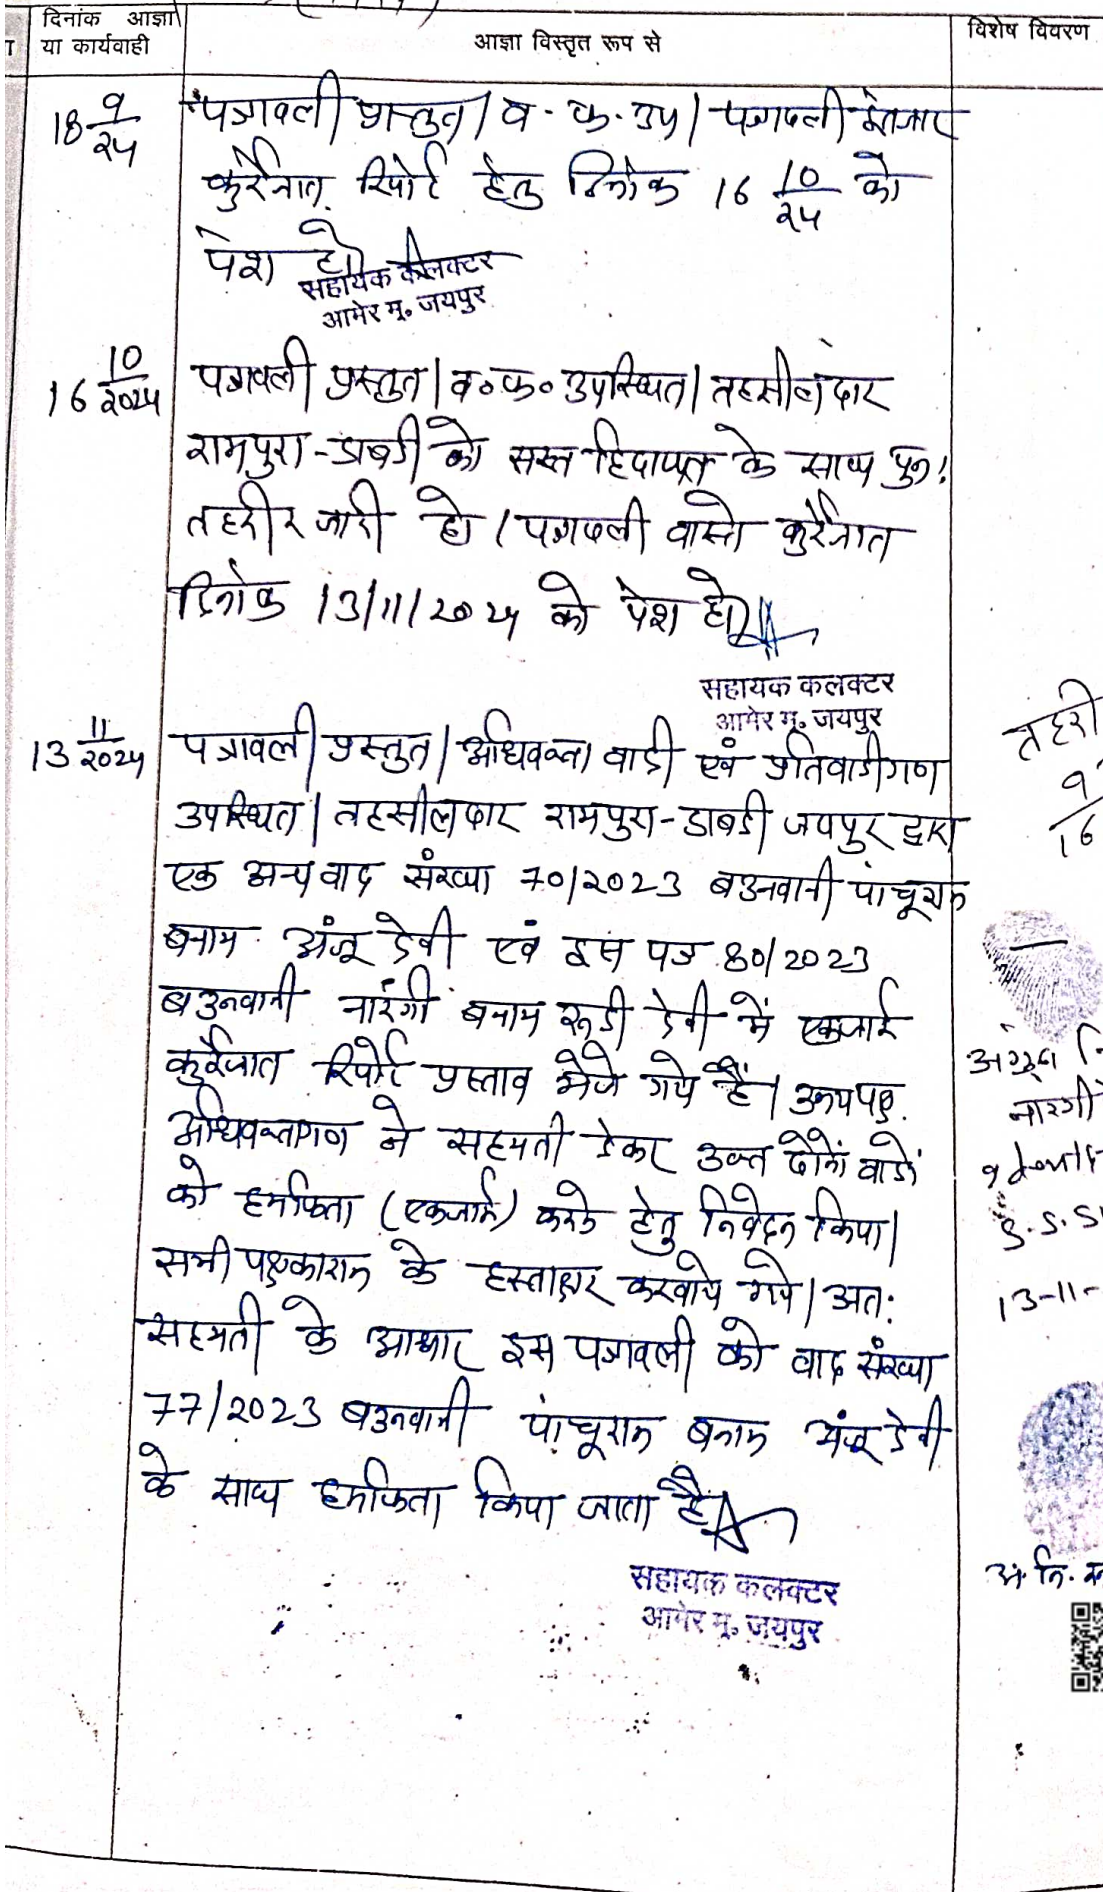 दिनांक आज्ञा
या कार्यवाही
आज्ञा विस्तृत रूप से
विशेष विवरण
18 9/24
पत्रावली प्रस्तुत। व. फ. उप। पत्रावली इंतजार
कुर्रेजात रिपोर्ट हेतु दिनांक 16 10/24 को
पेश हो
सहायक कलक्टर
आमेर मु० जयपुर
16 10/2024
पत्रावली प्रस्तुत। व० फ० उपस्थित। तहसीलदार
रामपुरा-डाबडी को सख्त हिदायत के साथ पुन:
तहरीर जारी हो। पत्रावली वास्ते कुर्रेजात
दिनांक 13/11/2024 को पेश हो।
सहायक कलक्टर
आमेर मु० जयपुर
13 11/2024
पत्रावली प्रस्तुत। अधिवक्ता वादी एवं प्रतिवादीगण
उपस्थित। तहसीलदार रामपुरा-डाबडी जयपुर द्वारा
एक अन्य वाद संख्या 70/2023 बउनवानी पांचूराम
बनाम अंजू देवी एवं इस पत्र 80/2023
बउनवानी नारंगी बनाम रूडी देवी में एकजाई
कुर्रेजात रिपोर्ट प्रस्ताव भेजे गये हैं। उभयपक्ष
अधिवक्तागण ने सहमती देकर उक्त दोनों वादों
को हमफिता (एकजाई) करने हेतु निवेदन किया।
सभी पक्षकारान के हस्ताक्षर करवाये गये। अत:
सहमती के आधार इस पत्रावली को वाद संख्या
77/2023 बउनवानी पांचूराम बनाम अंजू देवी
के साथ हमफिता किया जाता है।
सहायक कलक्टर
आमेर मु० जयपुर
तहरी
9
16
नारगी
S.S.S
13-11-
अं. नि.